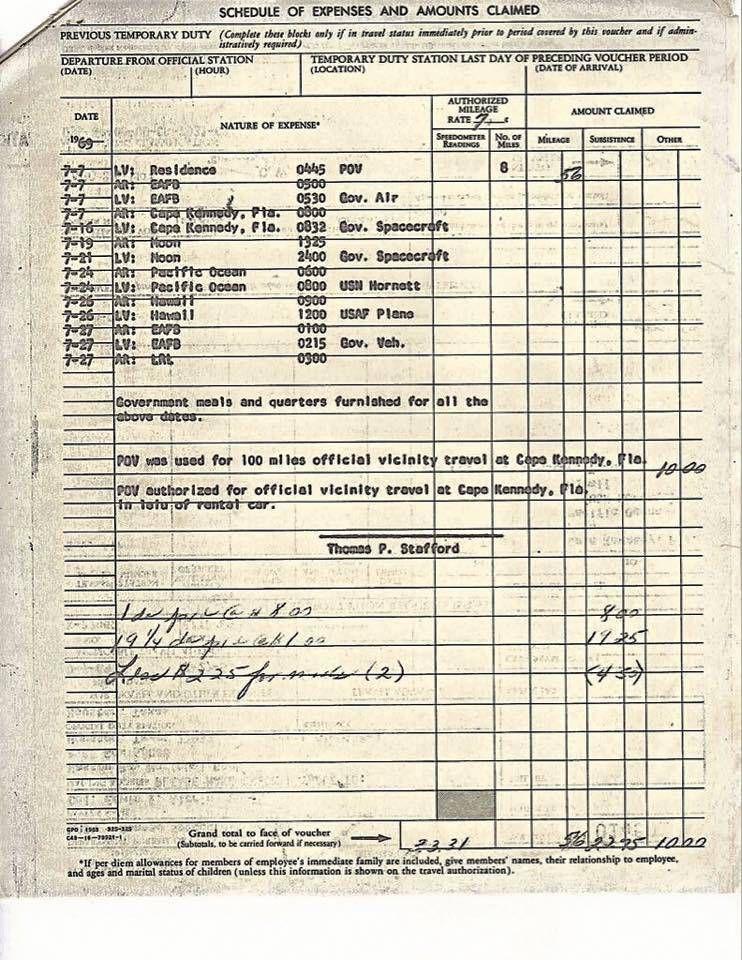 SCHEDULE OF EXPENSES AND AMOUNTS CLAIMED
PREVIOUS TEMPORARY DUTY (Complete these blocks only if in travel status immediately prior to period covered by this voucher and if admin-
istratively required)
DEPARTURE FROM OFFICIAL STATION TEMPORARY DUTY STATION LAST DAY OF PRECEDING VOUCHER PERIOD
(DATE) (HOUR) (LOCATION) (DATE OF ARRIVAL)
DATE NATURE OF EXPENSE* AUTHORIZED MILEAGE RATE 7 ¢ AMOUNT CLAIMED
1969 SPEEDOMETER READINGS NO. OF MILES MILEAGE SUBSISTENCE OTHER
7-7 LV: Residence 0445 POV 8 56
7-7 AR: EAFB 0500
7-7 LV: EAFB 0530 Gov. Air
7-7 AR: Cape Kennedy, Fla. 0800
7-16 LV: Cape Kennedy, Fla. 0832 Gov. Spacecraft
7-19 AR: Moon 1325
7-21 LV: Moon 2400 Gov. Spacecraft
7-24 AR: Pacific Ocean 0600
7-24 LV: Pacific Ocean 0800 USN Hornett
7-26 AR: Hawaii 0900
7-26 LV: Hawaii 1200 USAF Plane
7-27 AR: EAFB 0100
7-27 LV: EAFB 0215 Gov. Veh.
7-27 AR: LRL 0300
Government meals and quarters furnished for all the
above dates.
POV was used for 100 miles official vicinity travel at Cape Kennedy, Fla. 10.00
POV authorized for official vicinity travel at Cape Kennedy, Fla.
in leiu of rental car.
Thomas P. Stafford
1 day @ 8.00 8.00
19 1/4 days @ 1.00 19 25
Less $2.25 for meals (2) (4 50)
GPO : 1968
Grand total to face of voucher 33.31 56 22.75 10.00
(Subtotals, to be carried forward if necessary)
*If per diem allowances for members of employee's immediate family are included, give members' names, their relationship to employee,
and ages and marital status of children (unless this information is shown on the travel authorization).